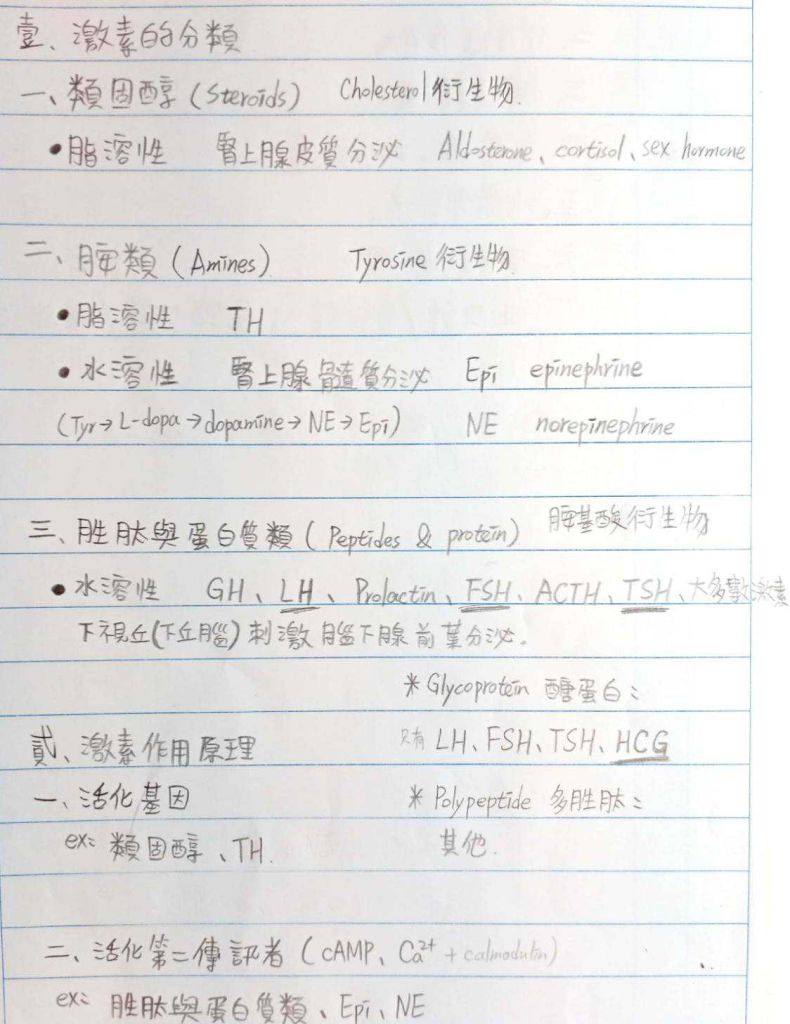 壹、激素的分類
一、類固醇(Steroids) Cholesterol衍生物.
•脂溶性 腎上腺皮質分泌 Aldosterone、cortisol、sex hormone
二、胺類(Amines) Tyrosine衍生物
•脂溶性 TH
•水溶性 腎上腺髓質分泌 Epi epinephrine
(Tyr→L-dopa→dopamine→NE→Epi) NE norepinephrine
三、胜肽與蛋白質類(Peptides & protein) 胺基酸衍生物
•水溶性 GH、LH、Prolactin、FSH、ACTH、TSH、大多數激素
下視丘(下丘腦)刺激腦下腺前葉分泌.
*Glycoprotein 醣蛋白:
貳、激素作用原理 只有 LH、FSH、TSH、HCG
一、活化基因 *Polypeptide 多胜肽:
ex: 類固醇、TH. 其他.
二、活化第二傳訊者(cAMP、Ca²⁺+calmodulin)
ex: 胜肽與蛋白質類、Epi、NE